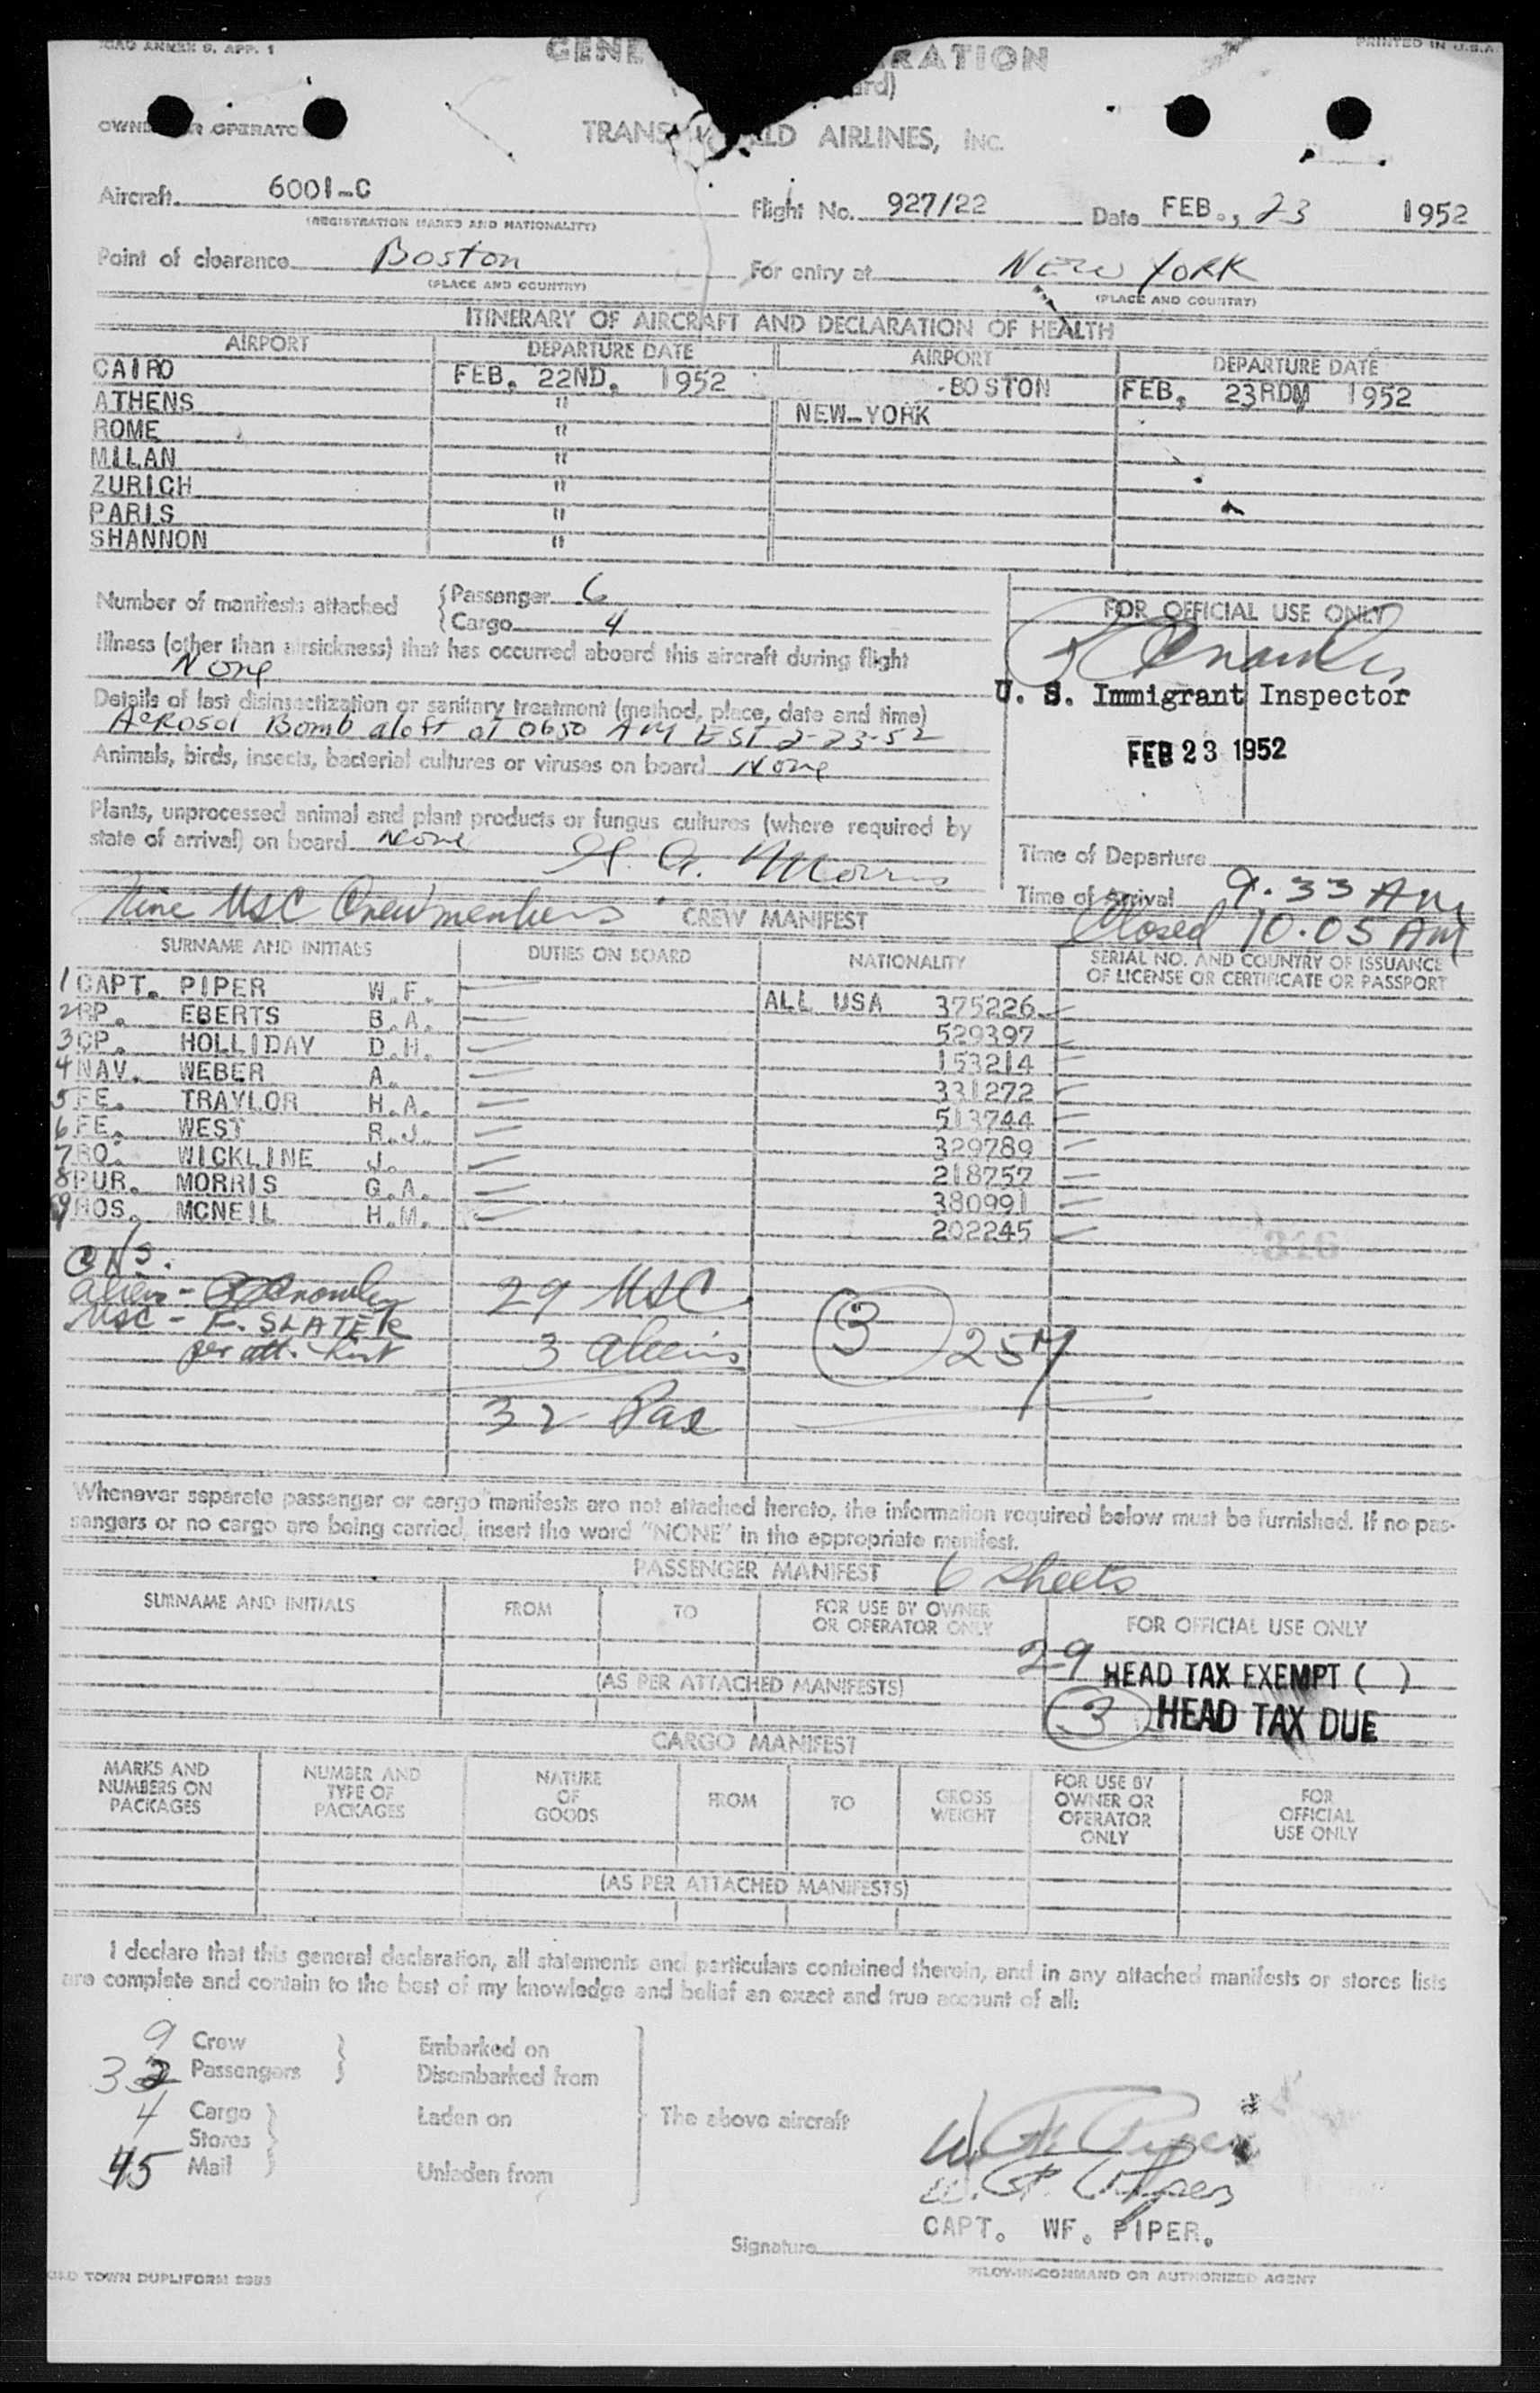 ICAO ANNEX 9, APP. 1
PRINTED IN U.S.A.
GENE RATION
ard)
OWNE R OPERATO
TRANS LD AIRLINES, INC.
Aircraft 6001-C Flight No. 927/22 Date FEB., 23 1952
(REGISTRATION MARKS AND NATIONALITY)
Point of clearance Boston For entry at NEW YORK
(PLACE AND COUNTRY) (PLACE AND COUNTRY)
ITINERARY OF AIRCRAFT AND DECLARATION OF HEALTH
AIRPORT DEPARTURE DATE AIRPORT DEPARTURE DATE
CAIRO FEB. 22ND. 1952 -BOSTON FEB, 23RDM 1952
ATHENS " NEW-YORK
ROME "
MILAN "
ZURICH "
PARIS "
SHANNON "
Number of manifests attached { Passenger 6
{ Cargo 4
FOR OFFICIAL USE ONLY
Illness (other than airsickness) that has occurred aboard this aircraft during flight
None
U. S. Immigrant Inspector
Details of last disinsectization or sanitary treatment (method, place, date and time)
Aerosol Bomb aloft at 0650 AM EST 2-23-52
FEB 23 1952
Animals, birds, insects, bacterial cultures or viruses on board None
Plants, unprocessed animal and plant products or fungus cultures (where required by
state of arrival) on board None
G. A. Morris
Time of Departure
Time of Arrival 9.33 AM
Closed 10.05 AM
Nine USC Crewmembers
CREW MANIFEST
SURNAME AND INITIALS DUTIES ON BOARD NATIONALITY SERIAL NO. AND COUNTRY OF ISSUANCE
OF LICENSE OR CERTIFICATE OR PASSPORT
1 CAPT. PIPER W.F. ALL USA 375226
2 RP. EBERTS B.A. 529397
3 CP. HOLLIDAY D.H. 153214
4 NAV. WEBER A. 331272
5 FE. TRAYLOR H.A. 513744
6 FE. WEST R.J. 329789
7 RO. WICKLINE J. 218757
8 PUR. MORRIS G.A. 380991
9 HOS. MCNEIL H.M. 202245
346
INS.
Alien - 29 USC
USC - F. SLATER
per att. list 3 Aliens (3) 25M
32 Pas
Whenever separate passenger or cargo manifests are not attached hereto, the information required below must be furnished. If no pas-
sengers or no cargo are being carried, insert the word "NONE" in the appropriate manifest.
PASSENGER MANIFEST 6 sheets
SURNAME AND INITIALS FROM TO FOR USE BY OWNER
OR OPERATOR ONLY FOR OFFICIAL USE ONLY
29 HEAD TAX EXEMPT ( )
(AS PER ATTACHED MANIFESTS)
(3) HEAD TAX DUE
CARGO MANIFEST
MARKS AND
NUMBERS ON
PACKAGES
NUMBER AND
TYPE OF
PACKAGES
NATURE
OF
GOODS
FROM
TO
GROSS
WEIGHT
FOR USE BY
OWNER OR
OPERATOR
ONLY
FOR
OFFICIAL
USE ONLY
(AS PER ATTACHED MANIFESTS)
I declare that this general declaration, all statements and particulars contained therein, and in any attached manifests or stores lists
are complete and contain to the best of my knowledge and belief an exact and true account of all:
9 Crew } Embarked on
32 Passengers } Disembarked from
4 Cargo } Laden on The above aircraft
Stores }
45 Mail } Unladen from
W. F. Piper
W. F. Piper
CAPT. WF. PIPER.
Signature
PILOT-IN-COMMAND OR AUTHORIZED AGENT
OLD TOWN DUPLIFORM